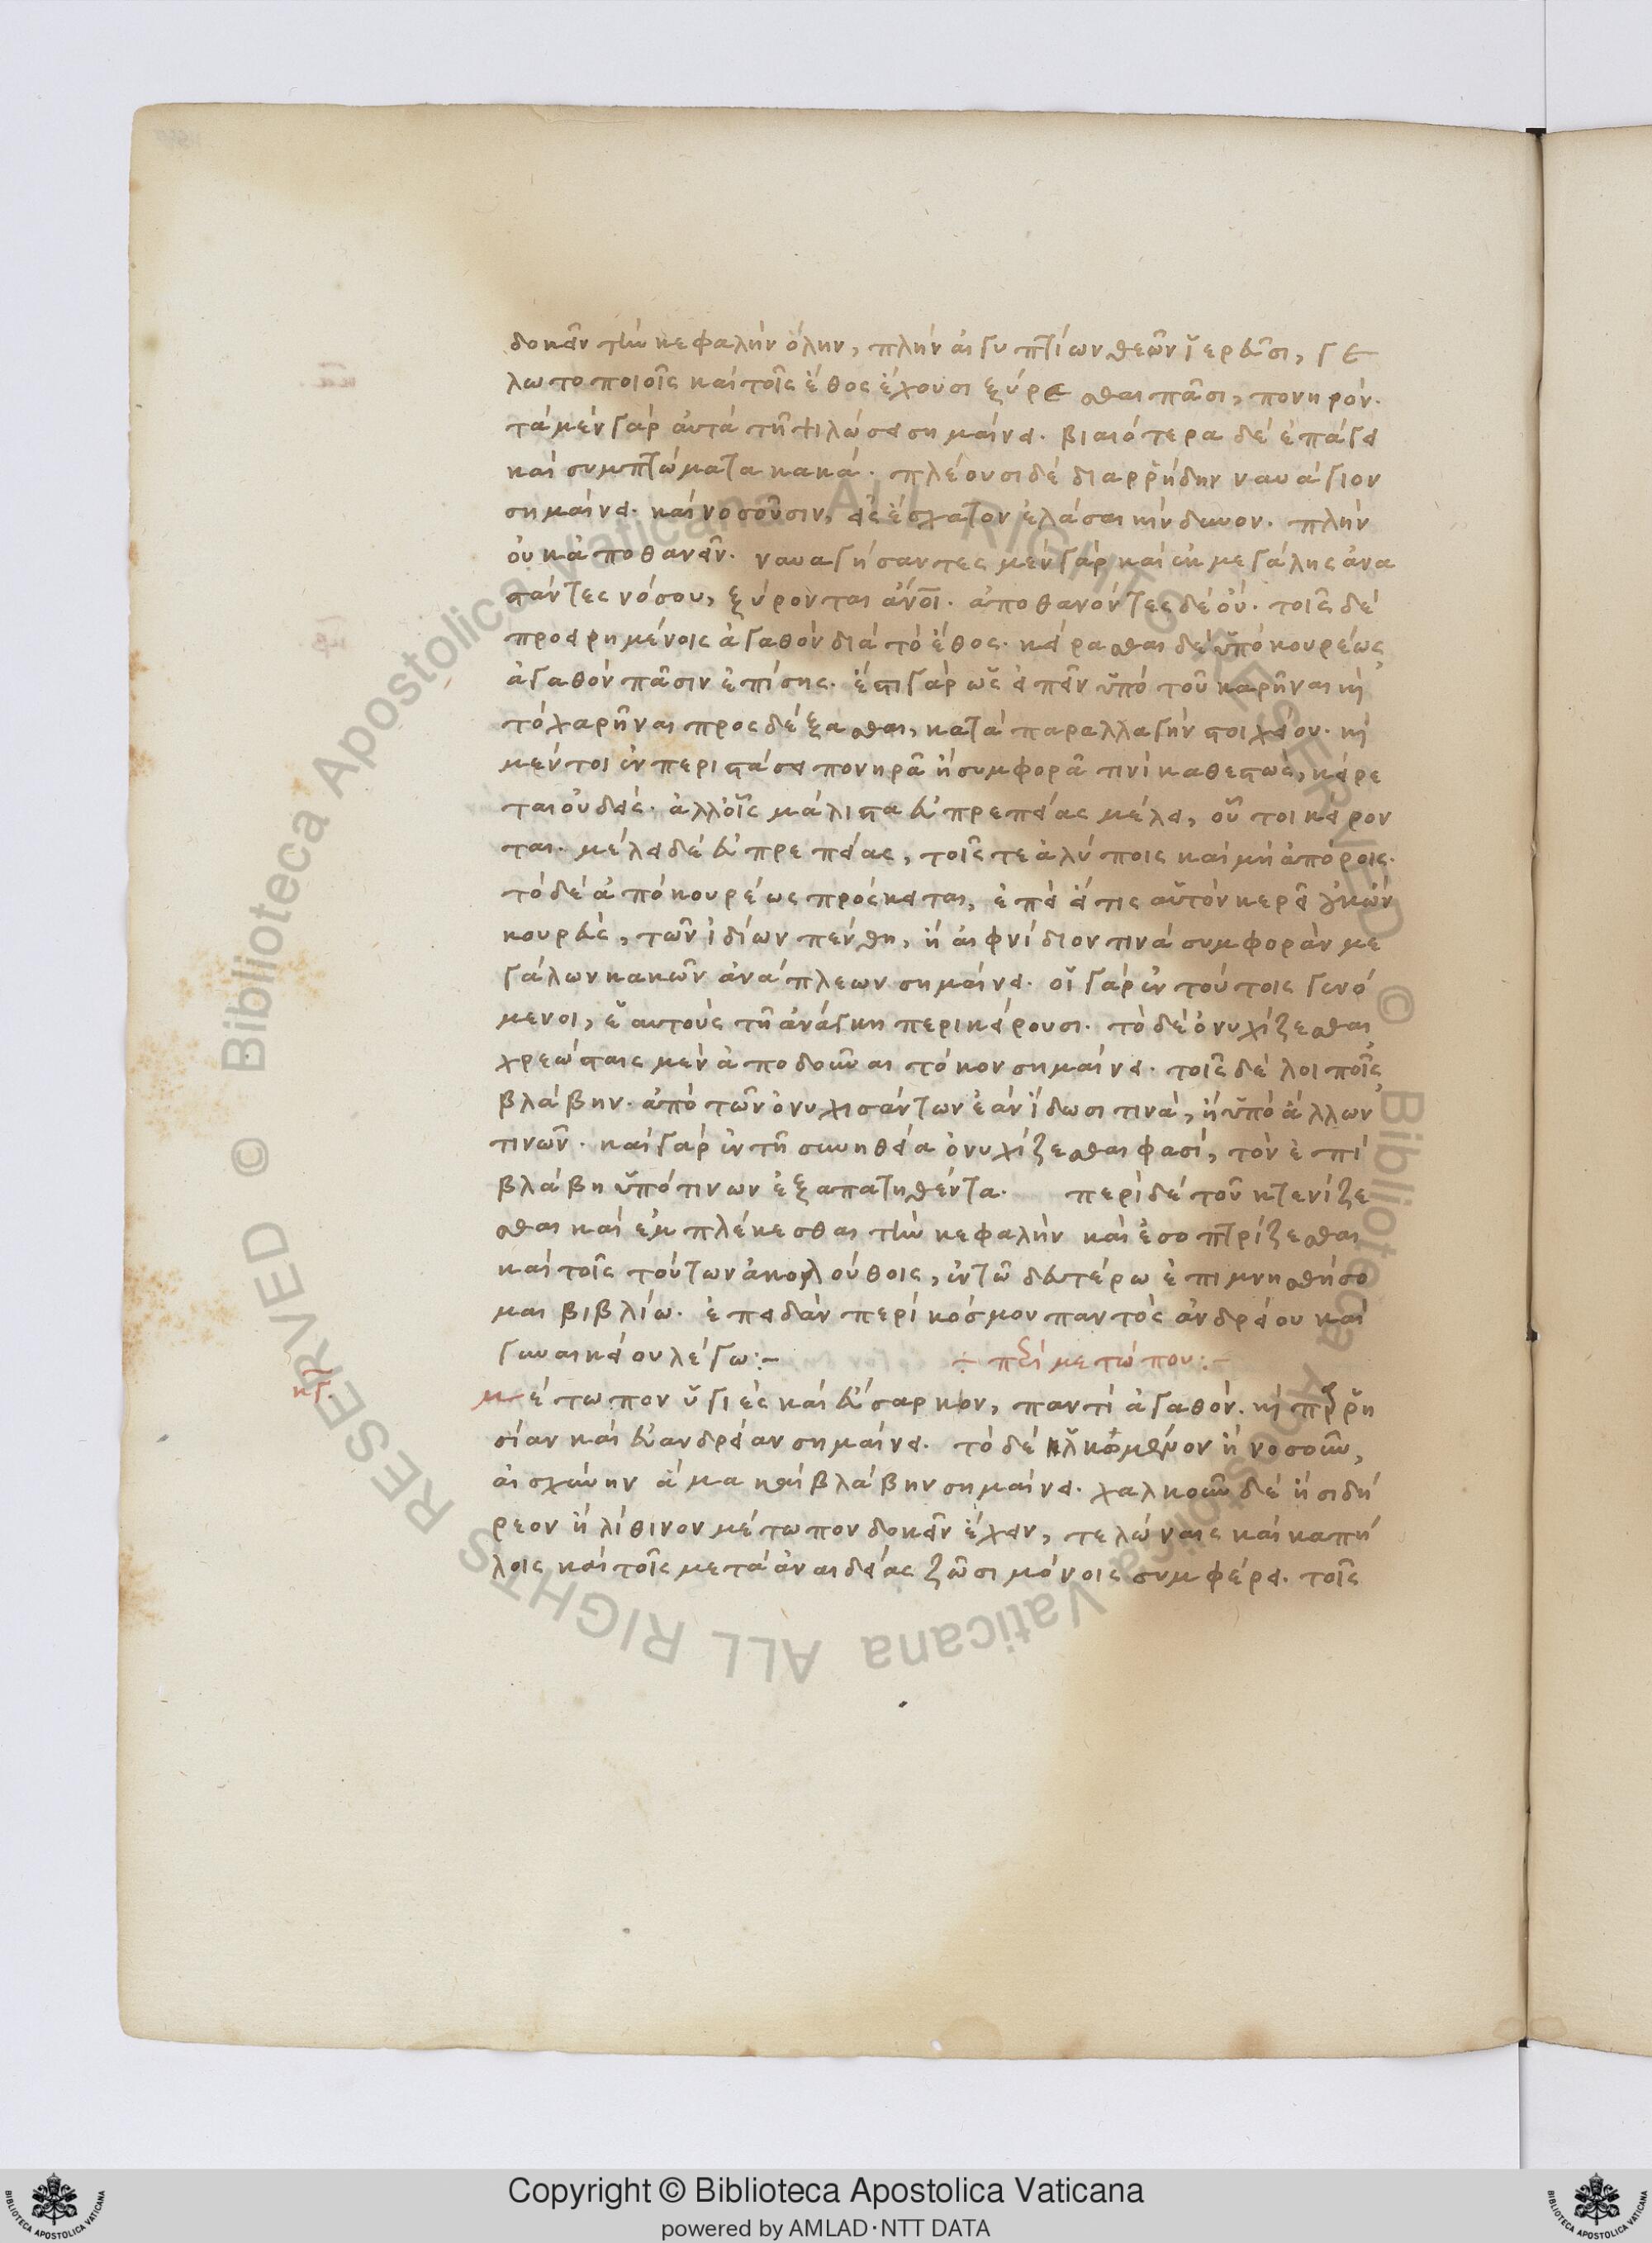 δοκεῖν τὴν κεφαλὴν ὅλην, πλὴν αἰγυπτίων θεῶν ἱερεῦσι, γε
λωτοποιοῖς καὶ τοῖς ἔθος ἔχουσι ξύρεσθαι πᾶσι, πονηρόν.
τὰ μὲν γὰρ αὐτὰ τῇ ψιλώσει σημαίνει. βιαιότερα δὲ ἐπάγει
καὶ συμπτώματα κακά. πλέουσι δὲ διαρρήδην ναυάγιον
σημαίνει. καὶ νοσοῦσιν, εἰς ἔσχατον ἐλάσαι κίνδυνον. πλὴν
οὐκ ἀποθανεῖν. ναυαγήσαντες μὲν γὰρ καὶ ἐκ μεγάλης ἀνα
στάντες νόσου, ξύρονται ἄνοι. ἀποθανόντες δὲ οὔ. τοῖς δὲ
προειρημένοις ἀγαθὸν διὰ τὸ ἔθος. κείρασθαι δὲ ὑπὸ κουρέως
ἀγαθὸν πᾶσιν ἐπίσης. ἔστι γὰρ ὡς εἰπεῖν ὑπὸ τοῦ καρῆναι κὴ
τὸ χαρῆναι προσδέξασθαι, κατὰ παραλλαγὴν στοιχείου. κὴ
μέντοι ἐν περιστάσει πονηρᾷ ἢ συμφορᾷ τινὶ καθεστὼς, κείρε
ται οὐδείς. ἀλλ' οἷς μάλιστα εὐπρεπείας μέλει, οὗτοι κείρον
ται. μέλει δὲ εὐπρεπείας, τοῖς τε ἀλύποις καὶ μὴ ἀπόροις.
τὸ δὲ ἀπὸ κουρέως πρόσκειται, ἐπεὶ εἴ τις αὑτὸν κερεῖ μὴ ὢν
κουρεὺς, τῶν ἰδίων πένθη, ἢ αἰφνίδιον τινὰ συμφορὰν με
γάλων κακῶν ἀνάπλεων σημαίνει. οἱ γὰρ ἐν τούτοις γενό
μενοι, ἑαυτοὺς τῇ ἀνάγκῃ περικείρουσι. τὸ δὲ ὀνυχίζεσθαι
χρεώσταις μὲν ἀποδοῦναι τόκον σημαίνει. τοῖς δὲ λοιποῖς
βλάβην. ἀπὸ τῶν ὀνυχισάντων ἐὰν ἴδωσι τινά, ἢ ὑπὸ ἄλλων
τινῶν. καὶ γὰρ ἐν τῇ συνηθείᾳ ὀνυχίζεσθαι φασί, τὸν ἐπὶ
βλάβῃ ὑπό τινων ἐξαπατηθέντα. περὶ δὲ τοῦ κτενίζε
σθαι καὶ ἐμπλέκεσθαι τὴν κεφαλὴν καὶ ἐσοπτρίζεσθαι
καὶ τοῖς τούτων ἀκολούθοις, ἐν τῷ δευτέρῳ ἐπιμνησθήσο
μαι βιβλίῳ. ἐπειδὰν περὶ κόσμον παντὸς ἀνδρείου καὶ
γυναικείου λέγω:-
÷ περὶ μετώπου:-
κγ.
Μέτωπον ὑγιὲς καὶ εὔσαρκον, παντὶ ἀγαθόν. κὴ παρρη
σίαν καὶ εὐανδρείαν σημαίνει. τὸ δὲ ἡλκωμένον ἢ νοσοῦν,
αἰσχύνην ἅμα καὶ βλάβην σημαίνει. χαλκοῦν δὲ ἢ σιδή
ρεον ἢ λίθινον μέτωπον δοκεῖν ἔχειν, τελώναις καὶ καπή
λοις καὶ τοῖς μετὰ ἀναιδείας ζῶσι μόνοις συμφέρει. τοῖς
Copyright © Biblioteca Apostolica Vaticana
powered by AMLAD·NTT DATA
© Biblioteca Apostolica Vaticana ALL RIGHTS RESERVED
© Biblioteca Apostolica Vaticana ALL RIGHTS RESERVED
BIBLIOTECA APOSTOLICA VATICANA
BIBLIOTECA APOSTOLICA VATICANA